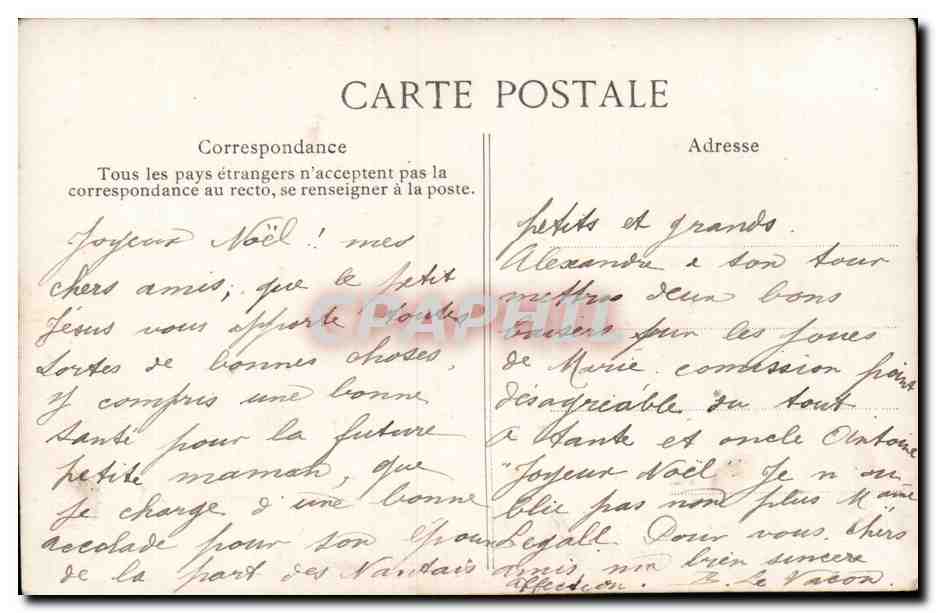 CARTE POSTALE
Correspondance
Tous les pays étrangers n'acceptent pas la
correspondance au recto, se renseigner à la poste.
Joyeux Noël! mes
chers amis, que le petit
Jésus vous apporte toutes
sortes de bonnes choses,
y compris une bonne
santé pour la future
petite maman, que
je charge d'une bonne
accolade pour son époux
de la part des Nantais
Adresse
petits et grands.
Alexandre a son tour
mettra deux bons
baisers sur les joues
de Marie. comission point
désagréable du tout
a tante et oncle Antoine
"Joyeux Noël" Je n ou-
blie pas non plus Mame
Legall. Pour vous, chers
amis, ma bien sincère
affection. Le Vacon.
CPAPHIL